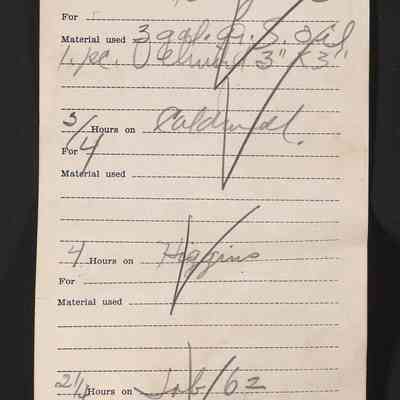 For
Material used 3 gal. G. S. oil
1. pc. 3" x 3"
3/4 Hours on Caldwell.
For
Material used
4 Hours on Higgins
For
Material used
2 1/4 Hours on Job 162